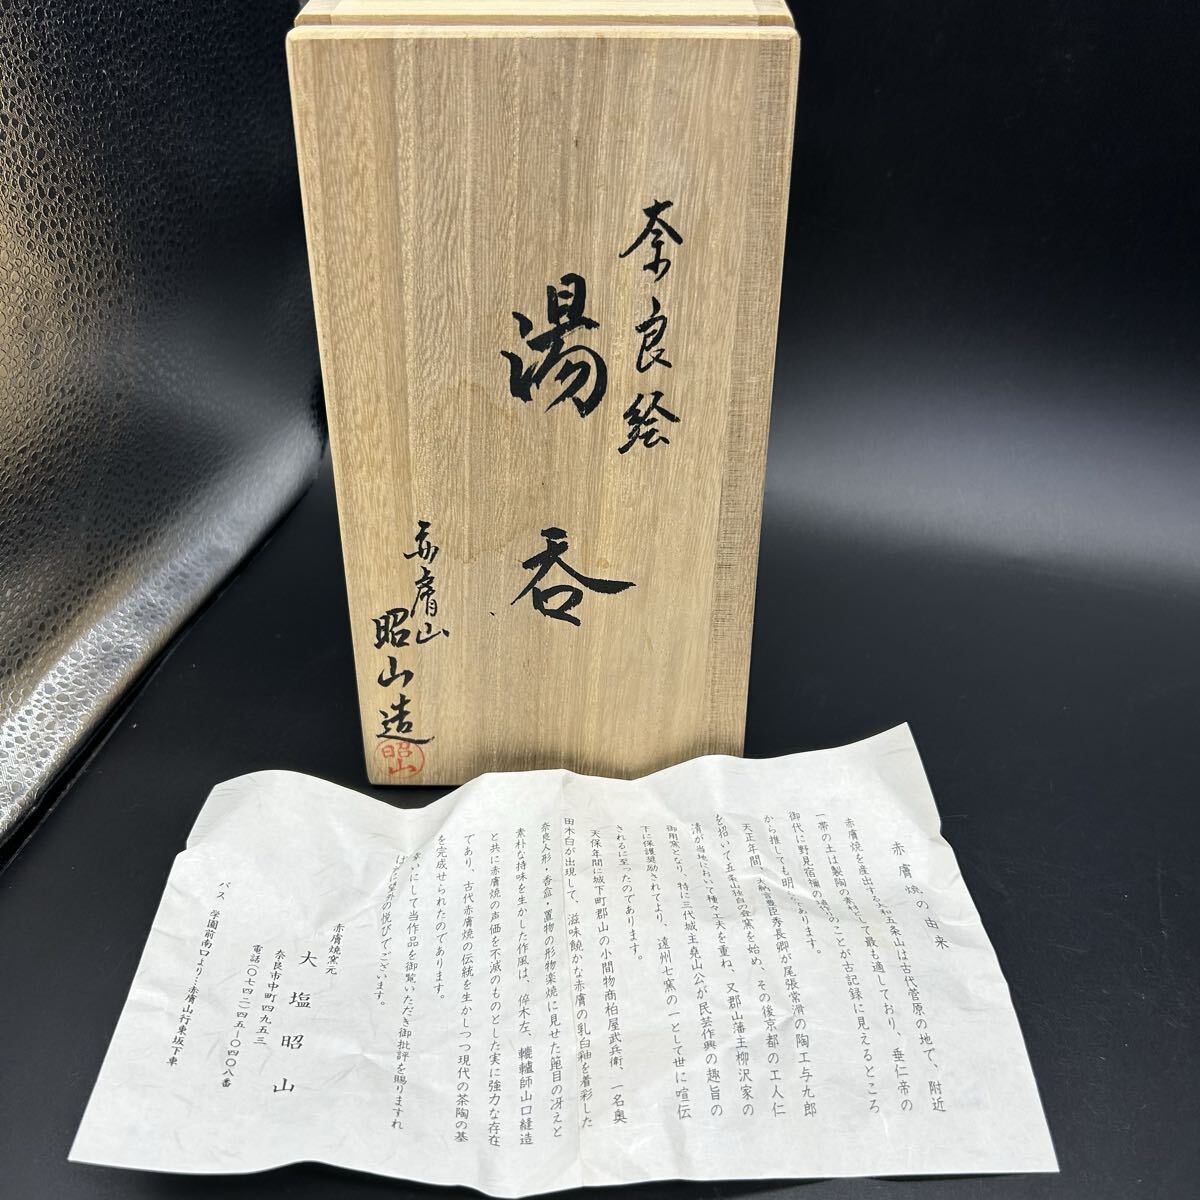 奈良絵
湯呑
赤膚山
昭山造
昭山
赤膚焼の由来
赤膚焼を産出する大和五条山は古代菅原の地で、附近
一帯の土は製陶の素材として最も適しており、垂仁帝の
御代に野見宿禰の
のことが古記録に見えるところ
から推しても明らかであります。
天正年間、大納言豊臣秀長卿が尾張常滑の陶工与九郎
を招いて五条山独自の登窯を始め、その後京都の工人仁
清が当地において種々工夫を重ね、又郡山藩主柳沢家の
御用窯となり、特に三代城主堯山公が民芸作興の趣旨の
下に保護奨励されてより、遠州七窯の一として世に喧伝
されるに至ったのであります。
天保年間に城下町郡山の小間物商柏屋武兵衛、一名奥
田木白が出現して、滋味饒かな赤膚の乳白釉を着彩した
奈良人形・香盒・置物の形物楽焼に見せた箆目の冴えと
素朴な持味を生かした作風は、倅木左、轆轤師山口縫造
と共に赤膚焼の声価を不滅のものとした実に強力な存在
であり、古代赤膚焼の伝統を生かしつつ現代の茶陶の基
を完成せられたのであります。
幸いにして当作品を御覧いただき御批評を賜りますれ
ばまことに望外の悦びでございます。
赤膚焼窯元
大塩昭山
奈良市中町四九五三
電話〇七四二-四五-〇四〇八番
バス 学園前南口より・赤膚山行東坂下車